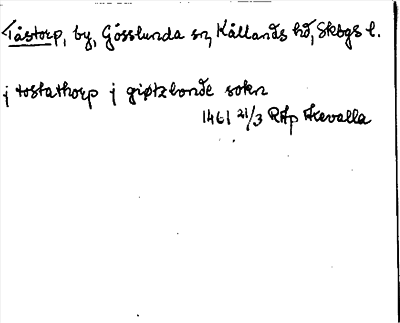 Tåstorp, by, Gösslunda sn, Kållands hd, Skbgs l.
j tostathorp j giøtzlonde sokn
1461 21/3 RAp Skevalla